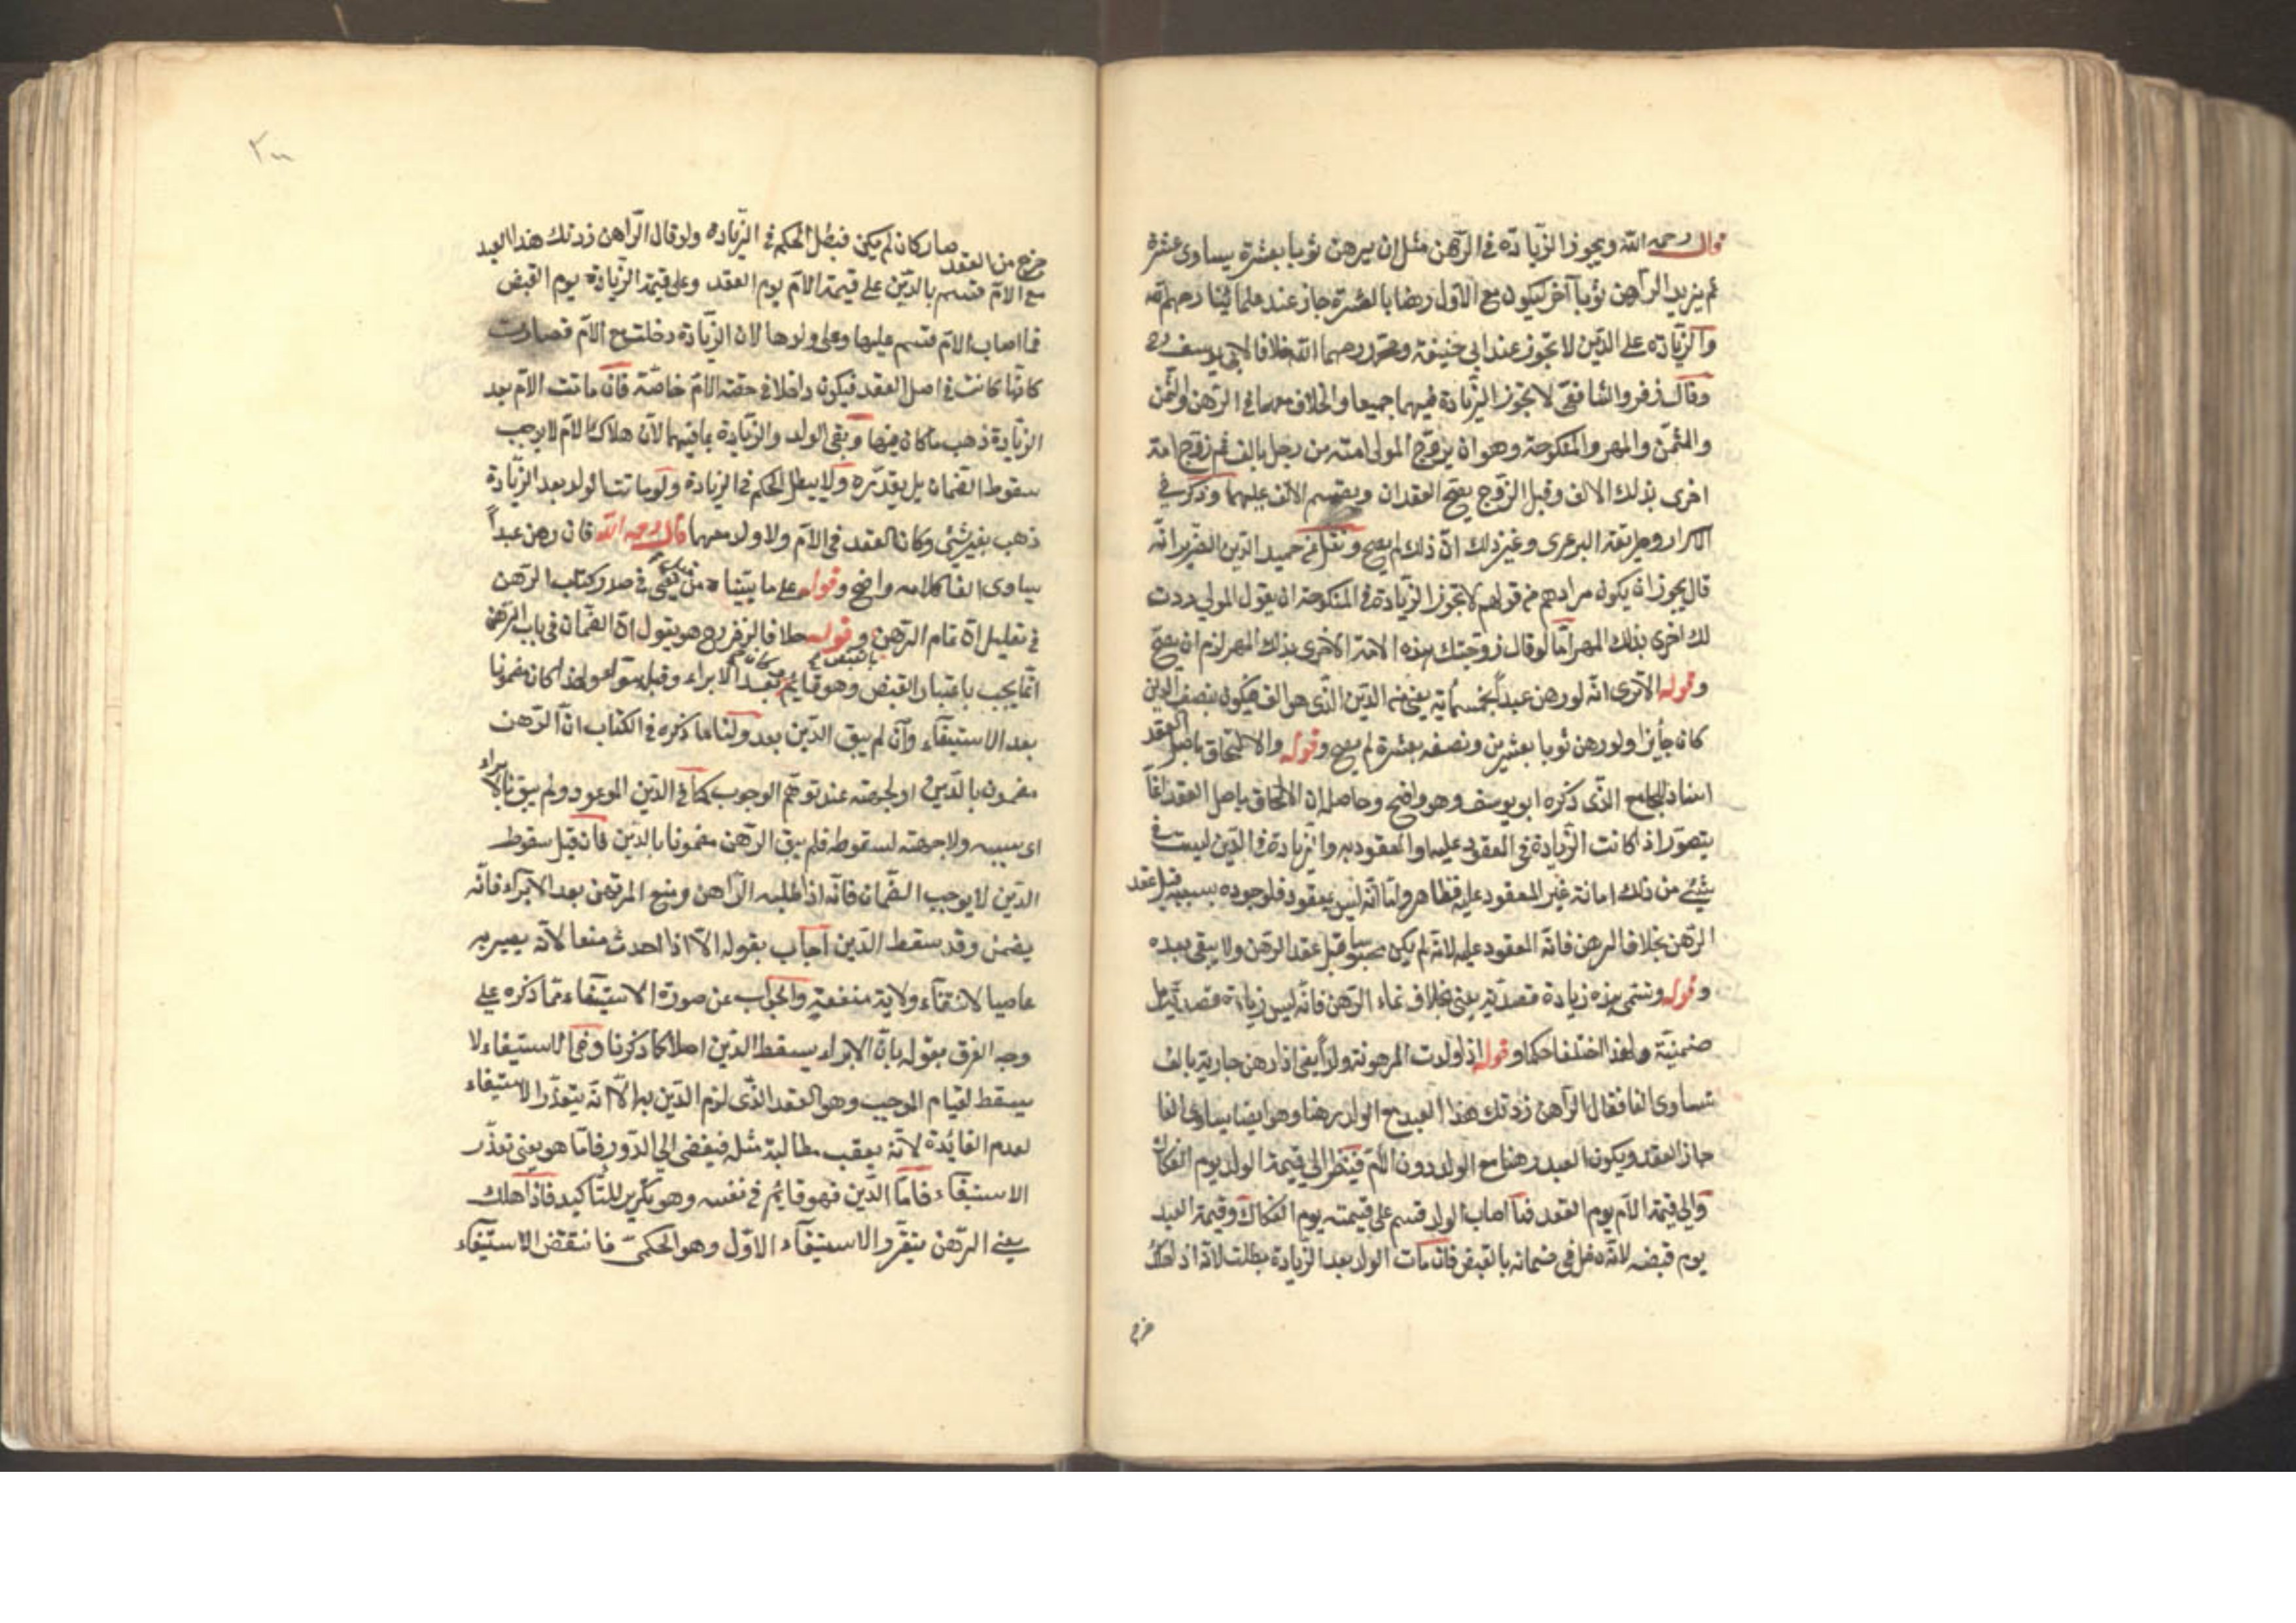 قال رحمه الله ويجوز الزيادة في الرهن مثل ان يرهن ثوبا بعشرة يساوى عشرة
ثم يزيد الراهن ثوبا آخر ليكون مع الاول رهنا بالعشرة جاز عند علمائنا رحمهم الله
والزيادة على الدين لا تجوز عند ابي حنيفة ومحمد رحمهما الله خلافا لابي يوسف ره
وقال زفر والشافعي لا تجوز الزيادة فيهما جميعا والخلاف معهما في الرهن والثمن
والمثمن والمهر والمنكوحة وهو ان يزوج المولى امته من رجل بالف ثم زوج امة
اخرى بذلك الالف وقبل الزوج يصح العقدان ويقسم الالف عليهما وذكر في
الاسرار وطريقة البرغرى وغير ذلك ان ذلك لم يصح ونقل عن حميد الدين الضرير انه
قال يجوز ان يكون مرادهم من قولهم لا تجوز الزيادة في المنكوحة ان يقول المولى زدت
لك اخرى بذلك المهر اما لو قال زوجتك هذه الامة الاخرى بذلك المهر لزم ان يصح
وقوله الا ترى انه لو رهن عبدا بخمسماية يعني من الدين الذى هو الف فيكون بنصف الدين
كان جايزا ولو رهن ثوبا بعشرين ونصفه بعشرة لم يصح وقوله والالتحاق باصل العقد
الجامع الذى ذكره ابو يوسف وهو واضح وحاصله ان الالتحاق باصل العقد انما
يتصور اذا كانت الزيادة في المعقود عليه او المعقود به والزيادة في الدين ليست في
شيئ من ذلك اما انه غير المعقود عليه فظاهر واما انه ليس بمعقود به فلوجوده بسببه قبل عقد
الرهن بخلاف الرهن فانه المعقود عليه لانه لم يكن محبوسا قبل عقد الرهن ولا يبقى بعده
وقوله وتسمى هذه زيادة قصدية يعنى بخلاف نماء الرهن فانه ليس زيادة قصدية بل
ضمنية ولهذا اختلفا حكما وقوله اذا ولدت المرهونة ولدا يعنى اذا رهن جارية بالف
تساوى الفا فقال الراهن زدتك هذا العبد مع الولد رهنا وهو ايضا يساوى الفا
جاز العقد ويكون العبد رهنا مع الولد دون الام فينظر الى قيمة الولد يوم الفكاك
والى قيمة الام يوم العقد فما اصاب الولد قسم على قيمته يوم الفكاك وقيمة العبد
يوم قبضه لانه دخل في ضمانه بالقبض فان مات الولد بعد الزيادة بطلت لانه اذا هلك
خرج
خرج من العقد صار كان لم يكن فبطل الحكم في الزيادة ولو قال الراهن زدتك هذا العبد
مع الام قسم بالدين على قيمة الام يوم العقد وعلى قيمة الزيادة يوم القبض
فما اصاب الام قسم عليها وعلى ولدها لان الزيادة دخلت مع الام فصارت
كانها كانت في اصل العقد فيكون داخلا في حصة الام خاصة فان ماتت الام بعد
الزيادة ذهب ما كان فيها وبقى الولد والزيادة بما فيهما لان هلاك الام لا يوجب
سقوط الضمان بل يقرره ولا يبطل الحكم في الزيادة ولو مات الولد بعد الزيادة
ذهب بغير شيئ وكان العقد في الام ولا ولد معها قال رحمه الله فان رهن عبدا
يساوى الفا كلامه واضح وقوله على ما بيناه في صدر كتاب الرهن
في تعليل ان تمام الرهن بالقبض وقوله خلافا لزفر ره هو يقول ان الضمان في باب الرهن
انما يجب باعتبار القبض وهو قايم بعد الابراء ولهذا كان مضمونا
بعد الاستيفاء وان لم يبق الدين بعد ولنا ما ذكره في الكتاب ان الرهن
مضمون بالدين او لجهته عند توهم الوجوب كما في الدين الموعود ولم يبق بالابراء
اى بسببه ولا جهته لسقوطه فلم يبق الرهن مضمونا بالدين فان قيل سقوط
الدين لا يوجب الضمان فانه اذا طلبه الراهن ومنع المرتهن بعد الابراء فانه
يضمن وقد سقط الدين اجاب بقوله الا اذا احدث منعا لانه يصير به
غاصبا لانتفاء ولاية منعه والجواب عن صورة الاستيفاء ما ذكره على
وجه الفرق بقوله بان الابراء يسقط الدين اصلا كما ذكرنا وفي الاستيفاء لا
يسقط لقيام الموجب وهو العقد الذى لزم الدين به الا انه يتعذر الاستيفاء
لعدم الفائدة لانه يعقب مطالبة مثله فيفضى الى الدور فاما هو يعنى تعذر
الاستيفاء فاما الدين فهو قايم في نفسه وهو تكرير للتاكيد فاذا هلك
يعني الرهن يتقرر الاستيفاء الاول وهو الحكمى فانتقض الاستيفاء